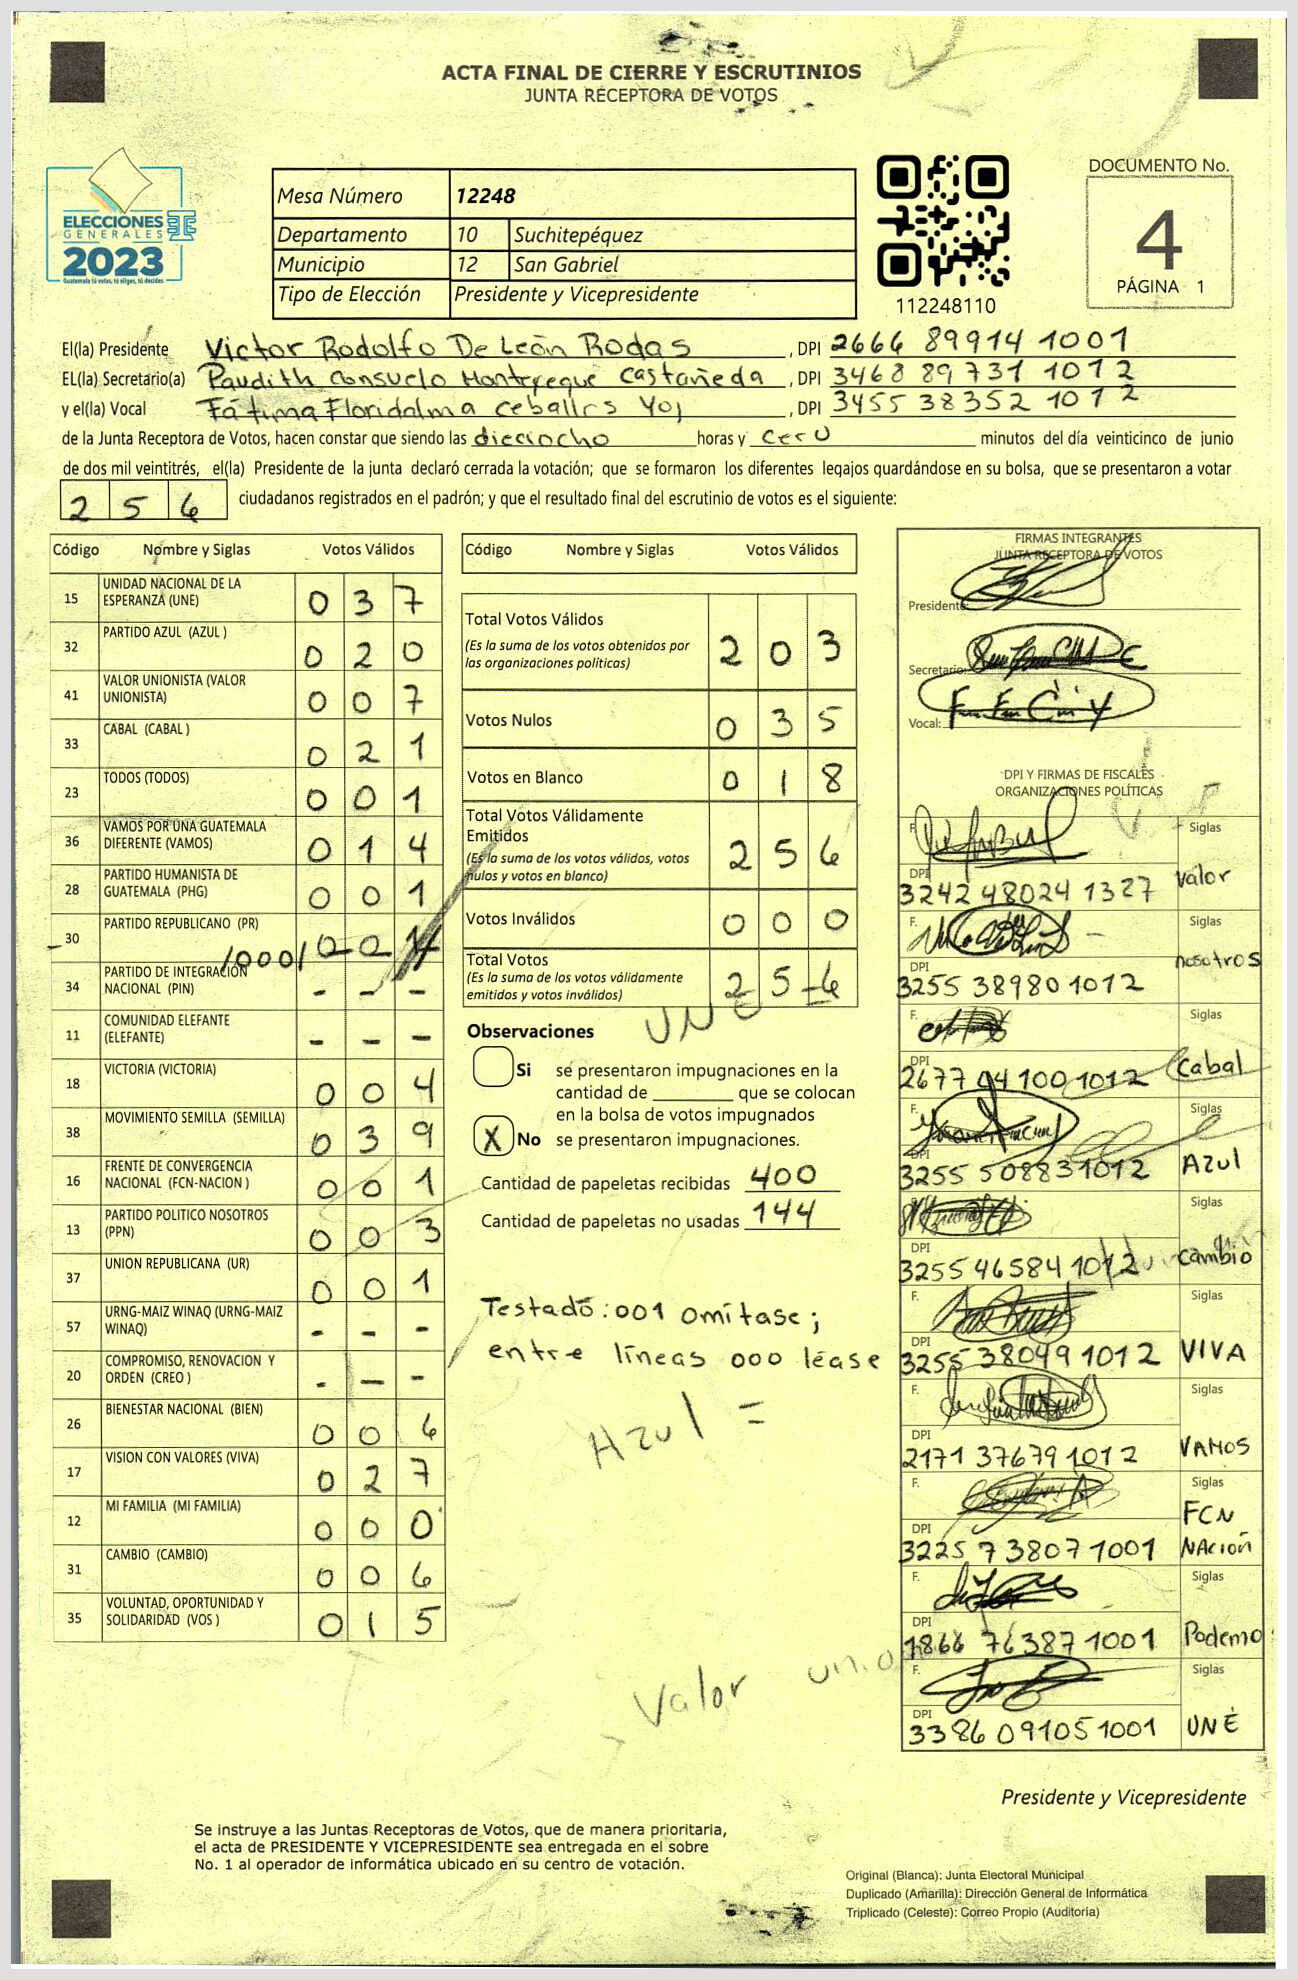 ACTA FINAL DE CIERRE Y ESCRUTINIOS
JUNTA RECEPTORA DE VOTOS
ELECCIONES
GENERALES
2023
Guatemala tú votas, tú eliges, tú decides
Mesa Número 12248
Departamento 10 Suchitepéquez
Municipio 12 San Gabriel
Tipo de Elección Presidente y Vicepresidente
112248110
DOCUMENTO No.
4
PÁGINA 1
El(la) Presidente Victor Rodolfo De León Rodas, DPI 2666 89914 1001
EL(la) Secretario(a) Paudith Consuelo Monterque Castañeda, DPI 3468 89731 1012
y el(la) Vocal Fátima Floridalma Ceballos Yoj, DPI 3455 38352 1012
de la Junta Receptora de Votos, hacen constar que siendo las dieciocho horas y cero minutos del día veinticinco de junio
de dos mil veintitrés, el(la) Presidente de la junta declaró cerrada la votación; que se formaron los diferentes legajos guardándose en su bolsa, que se presentaron a votar
2 5 6 ciudadanos registrados en el padrón; y que el resultado final del escrutinio de votos es el siguiente:
Código Nombre y Siglas Votos Válidos
15 UNIDAD NACIONAL DE LA ESPERANZA (UNE) 0 3 7
32 PARTIDO AZUL (AZUL ) 0 2 0
41 VALOR UNIONISTA (VALOR UNIONISTA) 0 0 7
33 CABAL (CABAL ) 0 2 1
23 TODOS (TODOS) 0 0 1
36 VAMOS POR UNA GUATEMALA DIFERENTE (VAMOS) 0 1 4
28 PARTIDO HUMANISTA DE GUATEMALA (PHG) 0 0 1
30 PARTIDO REPUBLICANO (PR) /000/ 0 0 1
34 PARTIDO DE INTEGRACIÓN NACIONAL (PIN) - - -
11 COMUNIDAD ELEFANTE (ELEFANTE) - - -
18 VICTORIA (VICTORIA) 0 0 4
38 MOVIMIENTO SEMILLA (SEMILLA) 0 3 9
16 FRENTE DE CONVERGENCIA NACIONAL (FCN-NACION ) 0 0 1
13 PARTIDO POLITICO NOSOTROS (PPN) 0 0 3
37 UNION REPUBLICANA (UR) 0 0 1
57 URNG-MAIZ WINAQ (URNG-MAIZ WINAQ) - - -
20 COMPROMISO, RENOVACION Y ORDEN (CREO ) - - -
26 BIENESTAR NACIONAL (BIEN) 0 0 6
17 VISION CON VALORES (VIVA) 0 2 7
12 MI FAMILIA (MI FAMILIA) 0 0 0
31 CAMBIO (CAMBIO) 0 0 6
35 VOLUNTAD, OPORTUNIDAD Y SOLIDARIDAD (VOS ) 0 1 5
Código Nombre y Siglas Votos Válidos
Total Votos Válidos 2 0 3
(Es la suma de los votos obtenidos por
las organizaciones políticas)
Votos Nulos 0 3 5
Votos en Blanco 0 1 8
Total Votos Válidamente
Emitidos 2 5 6
(Es la suma de los votos válidos, votos
nulos y votos en blanco)
Votos Inválidos 0 0 0
Total Votos 2 5 6
(Es la suma de los votos válidamente
emitidos y votos inválidos)
UNE
Observaciones
Si se presentaron impugnaciones en la
cantidad de ________ que se colocan
en la bolsa de votos impugnados
X No se presentaron impugnaciones.
Cantidad de papeletas recibidas 400
Cantidad de papeletas no usadas 144
Testado: 001 omítase;
entre líneas 000 léase
Azul =
Valor
FIRMAS INTEGRANTES
JUNTA RECEPTORA DE VOTOS
Presidente:
Secretario:
Vocal:
DPI Y FIRMAS DE FISCALES
ORGANIZACIONES POLÍTICAS
F. Siglas
DPI 3242 48024 1327 Valor
F. Siglas
DPI 3255 38980 1012 nosotros
F. Siglas
DPI 2677 04100 1012 Cabal
F. Siglas
DPI 3255 50883 1012 Azul
Siglas
DPI 3255 46584 1012 Cambio
F. Siglas
DPI 3255 38049 1012 VIVA
F. Siglas
DPI 2171 37679 1012 VAMOS
F. Siglas
DPI 3225 73807 1001 FCN NAción
F. Siglas
DPI 1866 76387 1001 Podemo
F. Siglas
DPI 3386 09105 1001 UNE
Presidente y Vicepresidente
Se instruye a las Juntas Receptoras de Votos, que de manera prioritaria,
el acta de PRESIDENTE Y VICEPRESIDENTE sea entregada en el sobre
No. 1 al operador de informática ubicado en su centro de votación.
Original (Blanca): Junta Electoral Municipal
Duplicado (Amarilla): Dirección General de Informática
Triplicado (Celeste): Correo Propio (Auditoría)